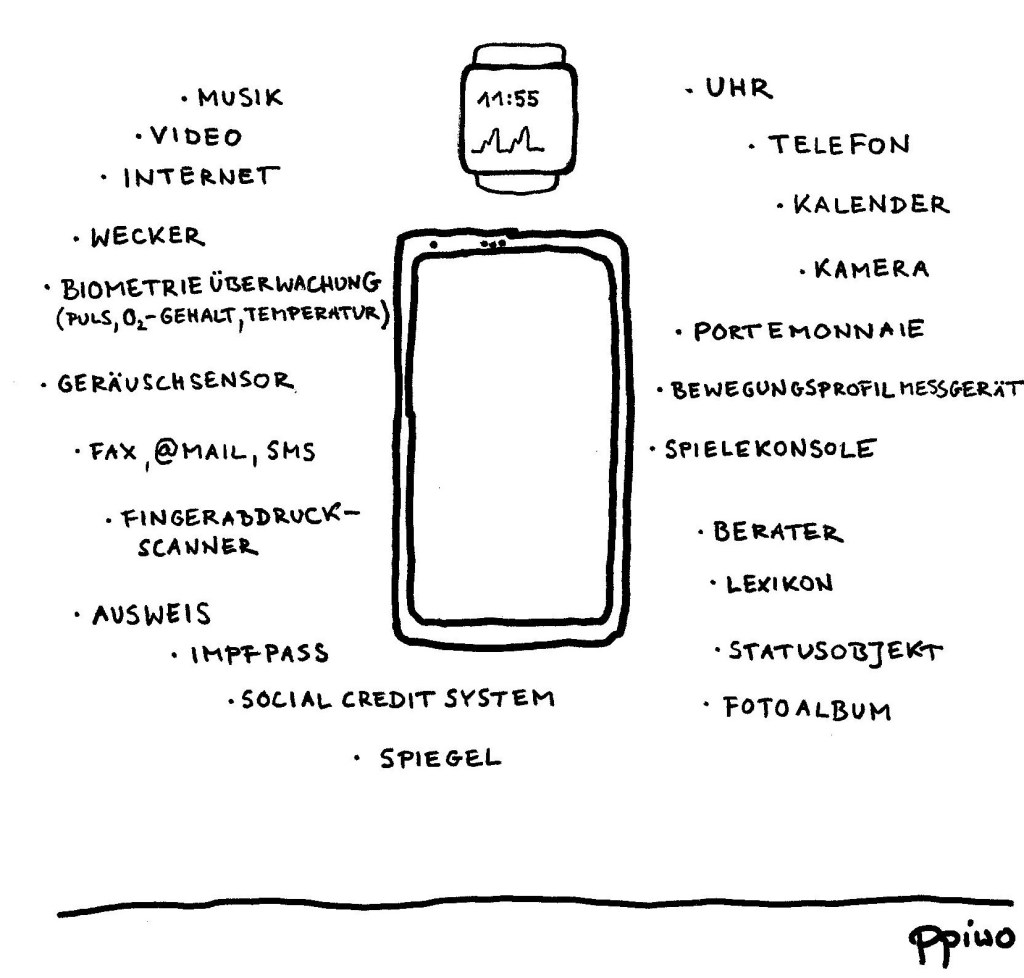 11:55
· MUSIK
· VIDEO
· INTERNET
· WECKER
· BIOMETRIE ÜBERWACHUNG
(PULS, O₂-GEHALT, TEMPERATUR)
· GERÄUSCHSENSOR
· FAX, @MAIL, SMS
· FINGERABDRUCK-
SCANNER
· AUSWEIS
· IMPFPASS
· SOCIAL CREDIT SYSTEM
· SPIEGEL
· UHR
· TELEFON
· KALENDER
· KAMERA
· PORTEMONNAIE
· BEWEGUNGSPROFILMESSGERÄT
· SPIELEKONSOLE
· BERATER
· LEXIKON
· STATUSOBJEKT
· FOTOALBUM
ppiwo